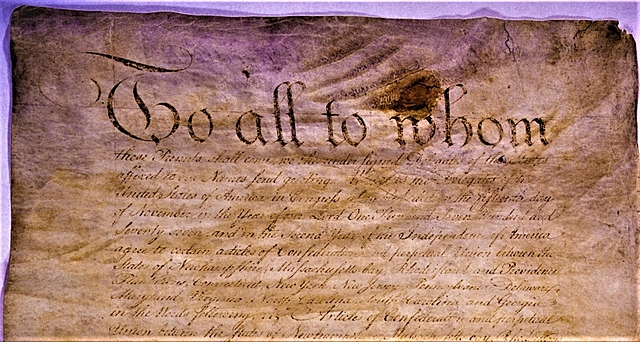 To all to whom
these Presents shall come, we the under signed Delegates of the States
affixed to our Names send greeting. Whereas the Delegates of the
United States of America in Congress assembled did on the fifteenth day
of November in the Year of our Lord One Thousand Seven Hundred and
Seventy seven, and in the Second Year of the Independence of America
agree to certain articles of Confederation and perpetual Union between the
States of Newhampshire, Massachusetts-bay, Rhodeisland and Providence
Plantations, Connecticut, New York, New Jersey, Pennsylvania, Delaware,
Maryland, Virginia, North-Carolina, South-Carolina and Georgia
in the Words following, viz. Articles of Confederation and perpetual
Union between the States of Newhampshire, Massachusetts-bay, Rhodeisland